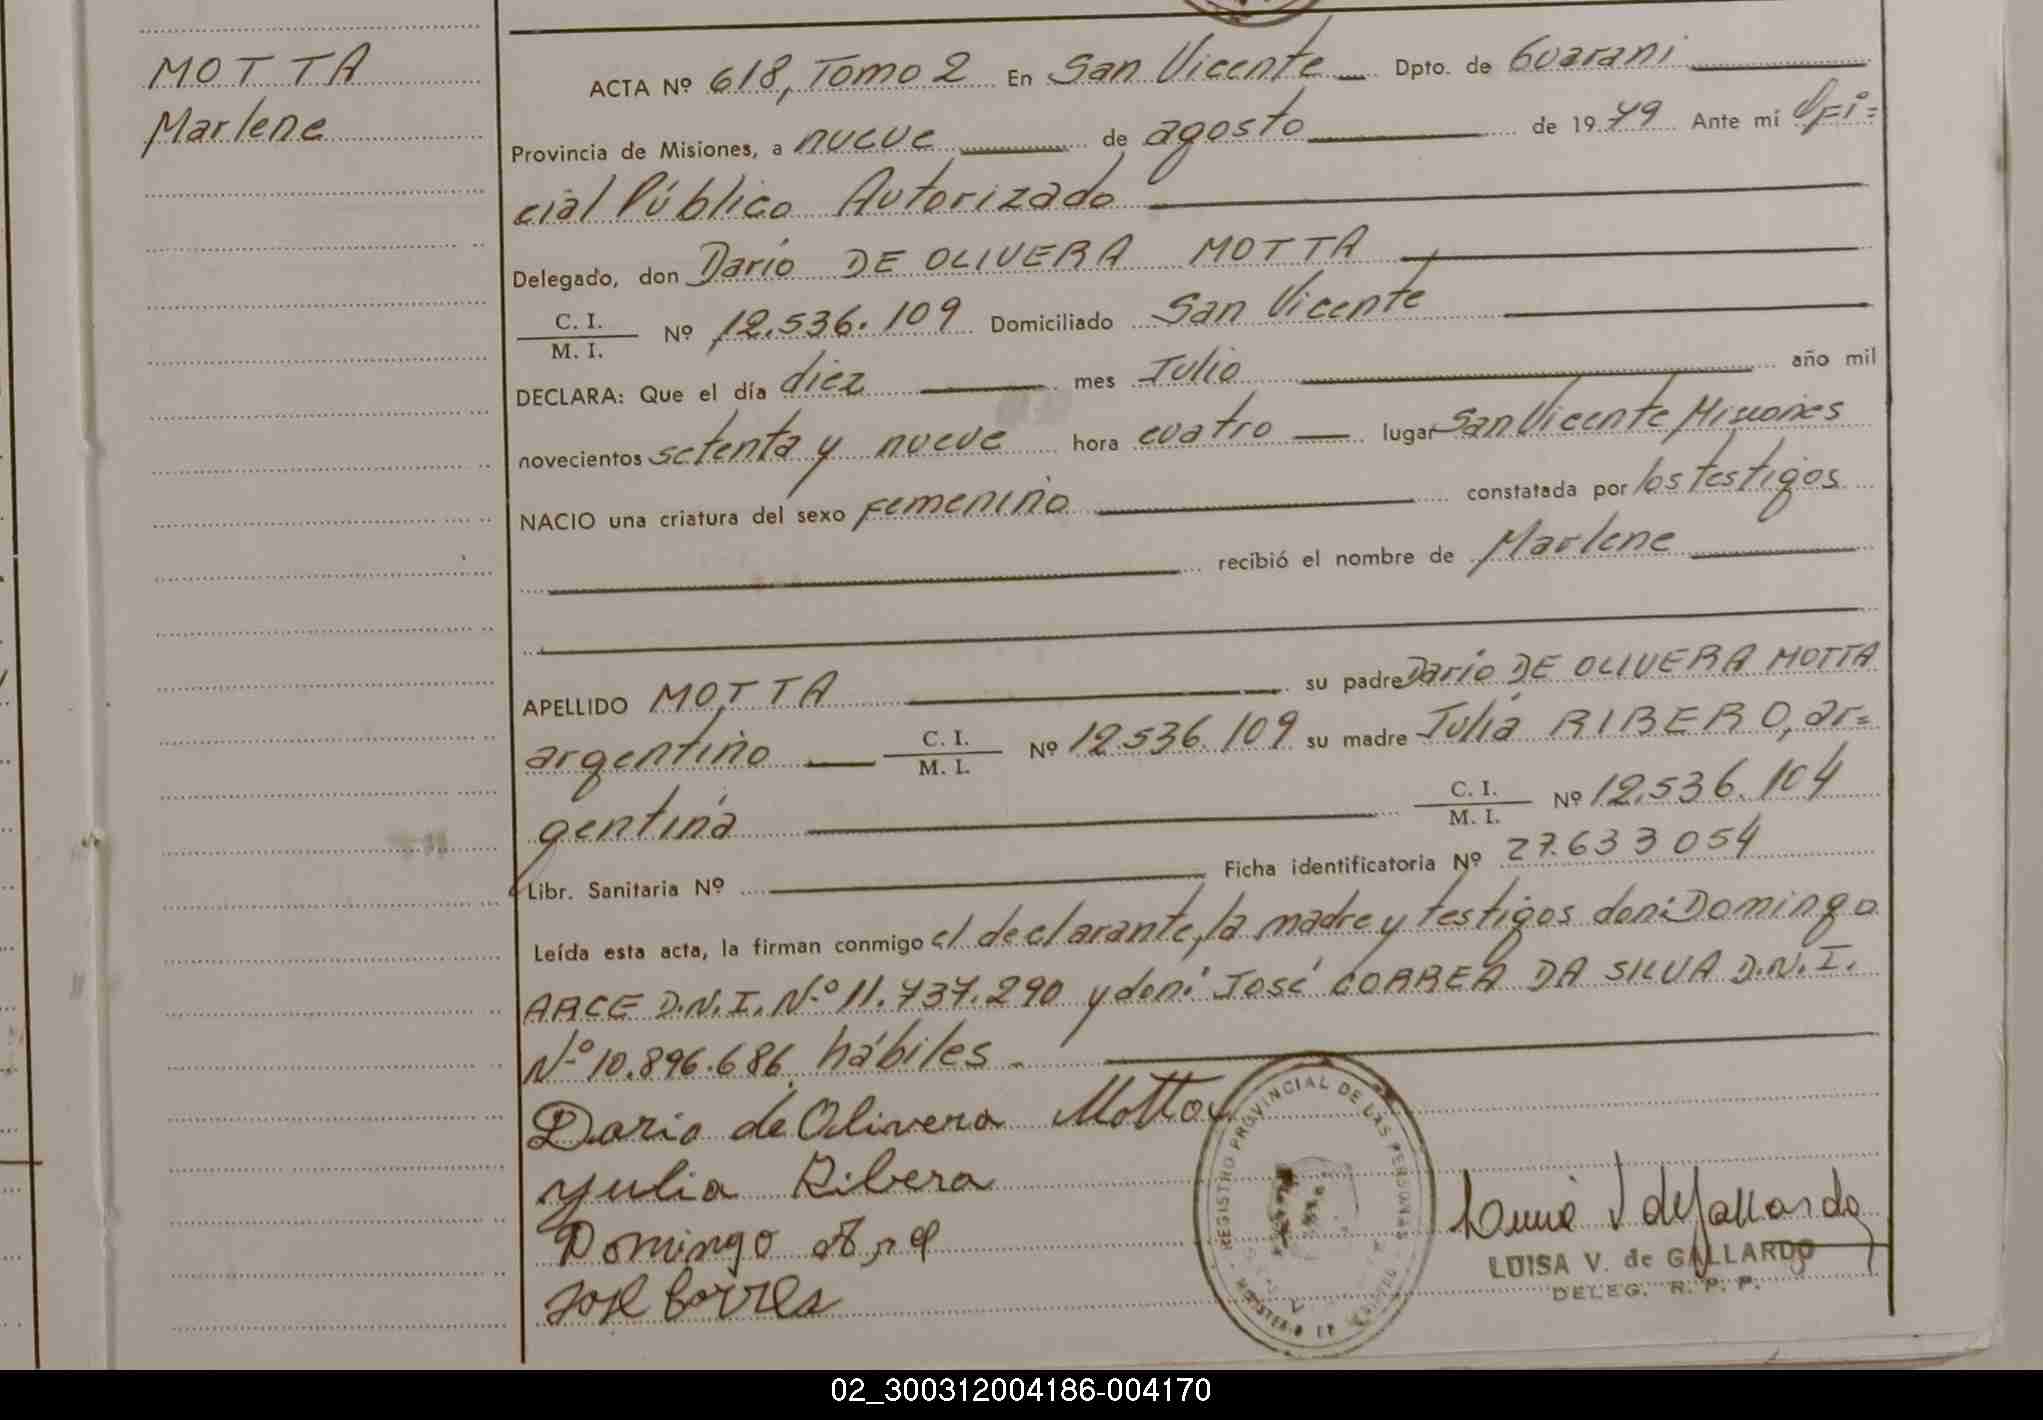 MOTTA
Marlene
ACTA Nº 618, Tomo 2 En San Vicente Dpto. de Guaraní
Provincia de Misiones, a nueve de agosto de 1979 Ante mí Ofi=
cial Público Autorizado
Delegado, don Darío DE OLIVERA MOTTA
C. I. / M. I. Nº 12.536.109 Domiciliado San Vicente
DECLARA: Que el día diez mes Julio año mil
novecientos setenta y nueve hora cuatro lugar San Vicente Misiones
NACIO una criatura del sexo femenino constatada por los testigos
recibió el nombre de Marlene
APELLIDO MOTTA su padre Darío DE OLIVERA MOTTA
argentino C. I. / M. I. Nº 12.536.109 su madre Julia RIBERO, ar=
gentina C. I. / M. I. Nº 12.536.104
Libr. Sanitaria Nº Ficha identificatoria Nº 27.633054
Leída esta acta, la firman conmigo el declarante, la madre y testigos don: Domingo
ARCE D.N.I. Nº 11.737.290 y don: José CORREA DA SILVA D.N.I.
Nº 10.896.686 hábiles.
Dario de Olivera Motta
Yulia Ribero
Domingo
José Correa
REGISTRO PROVINCIAL DE LAS PERSONAS
MINISTERIO
LUISA V. de GALLARDO
DELEG. R. P. P.
02_300312004186-004170